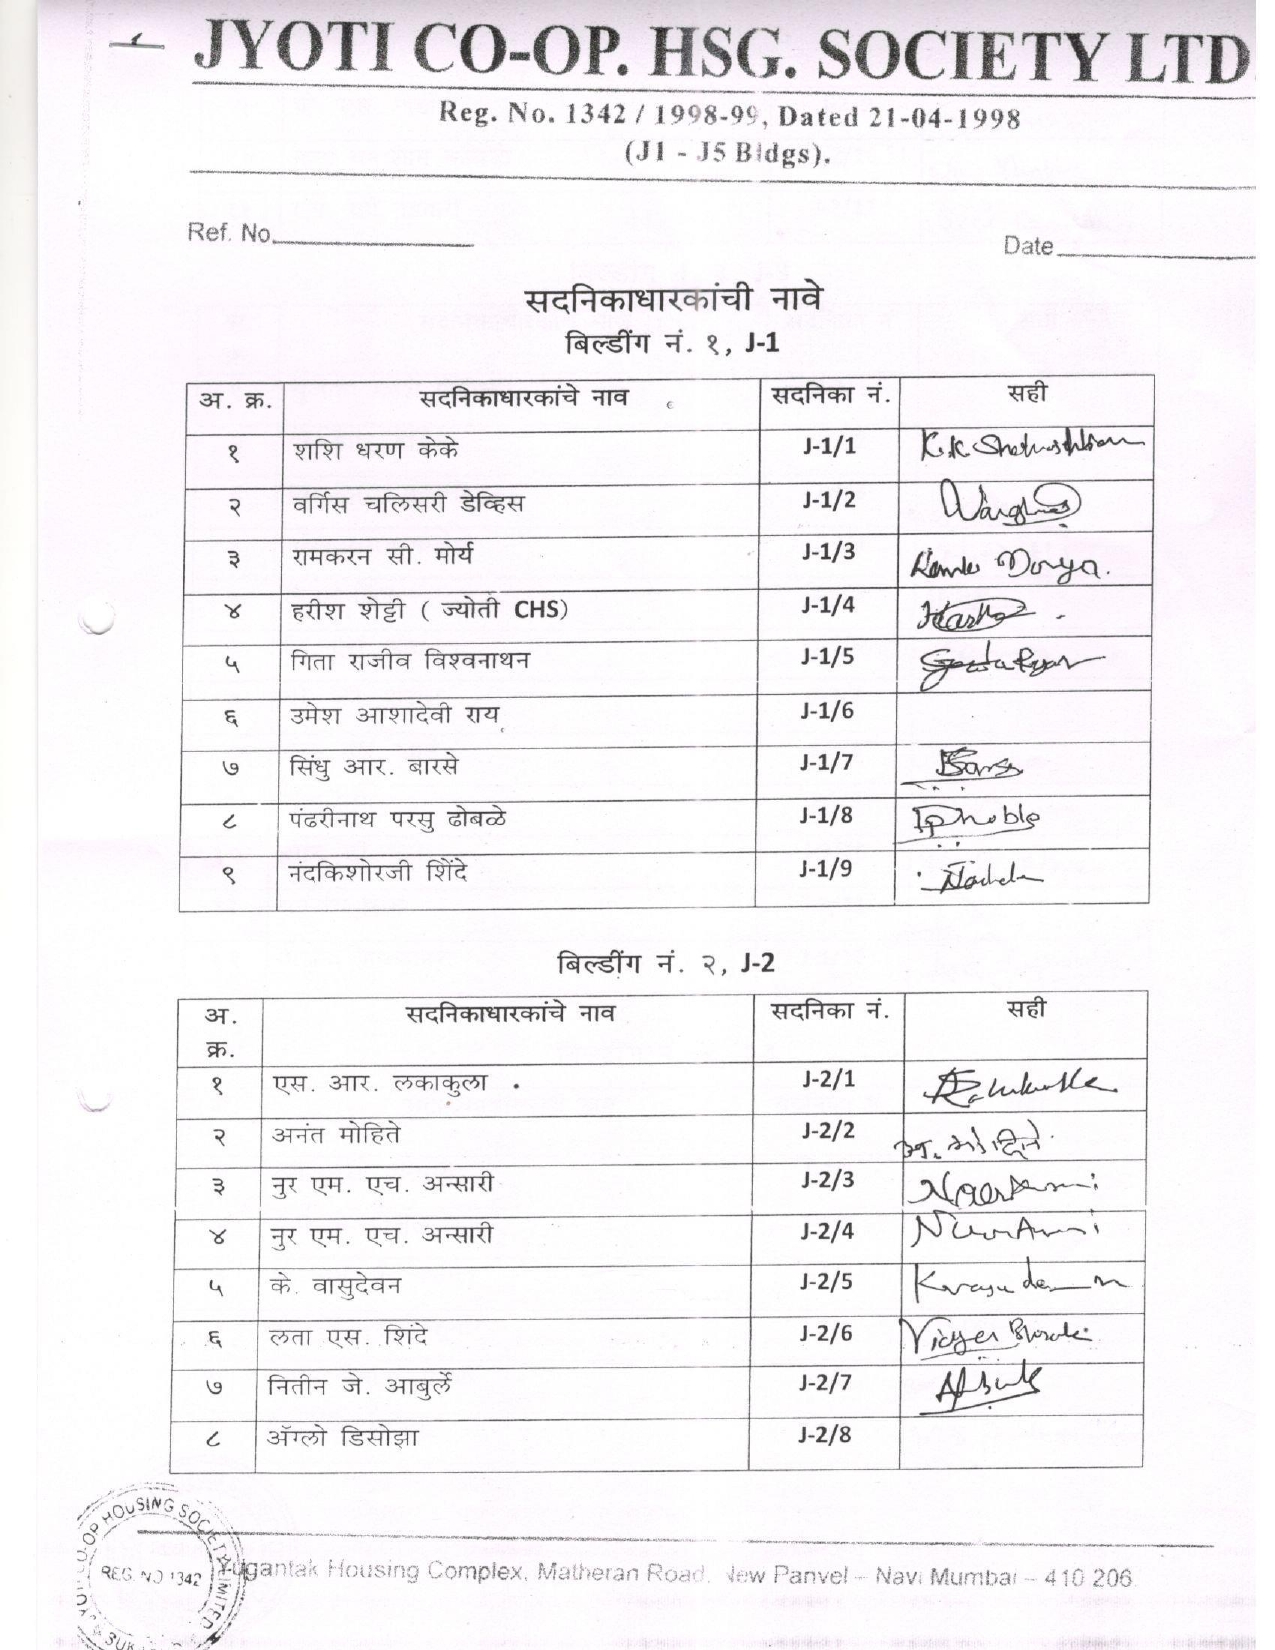 JYOTI CO-OP. HSG. SOCIETY LTD
Reg. No. 1342 / 1998-99, Dated 21-04-1998
(J1 - J5 Bldgs).
Ref. No.
Date
सदनिकाधारकांची नावे
बिल्डींग नं. १, J-1
अ. क्र. सदनिकाधारकांचे नाव सदनिका नं. सही
१ शशि धरण केके J-1/1
२ वर्गिस चलिसरी डेव्हिस J-1/2
३ रामकरन सी. मोर्य J-1/3
४ हरीश शेट्टी ( ज्योती CHS) J-1/4
५ गिता राजीव विश्वनाथन J-1/5
६ उमेश आशादेवी राय J-1/6
७ सिंधु आर. बारसे J-1/7
८ पंढरीनाथ परसु ढोबळे J-1/8
९ नंदकिशोरजी शिंदे J-1/9
बिल्डींग नं. २, J-2
अ. सदनिकाधारकांचे नाव सदनिका नं. सही
क्र.
१ एस. आर. लकाकुला J-2/1
२ अनंत मोहिते J-2/2 अ. मोहिते
३ नुर एम. एच. अन्सारी J-2/3
४ नुर एम. एच. अन्सारी J-2/4
५ के. वासुदेवन J-2/5
६ लता एस. शिंदे J-2/6
७ नितीन जे. आबुर्ले J-2/7
८ ॲग्लो डिसोझा J-2/8
CO-OP HOUSING SOCIETY LIMITED
REG. NO 1342
Yugantak Housing Complex, Matheran Road, New Panvel – Navi Mumbai – 410 206.